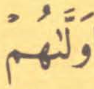 وَلَّىٰهُمْ